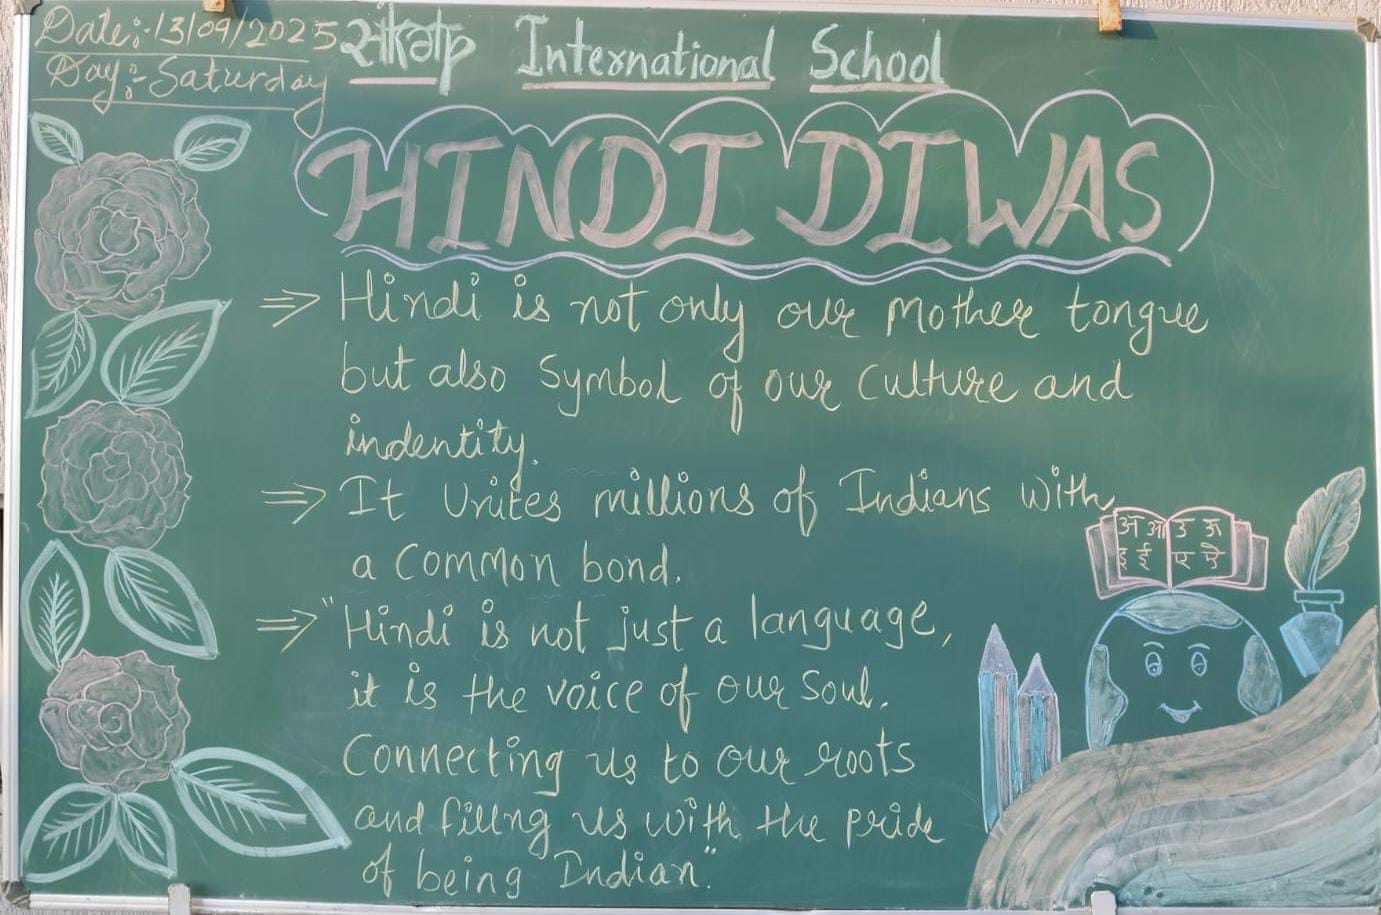 Date:- 13/09/2025
Day:- Saturday
International School
HINDI DIWAS
⇒ Hindi is not only our mother tongue
but also Symbol of our culture and
indentity.
⇒ It Unites millions of Indians with
a common bond.
⇒ "Hindi is not just a language,
it is the voice of our Soul.
Connecting us to our roots
and filling us with the pride
of being Indian".
अ आ उ ऊ
इ ई ए ऐ